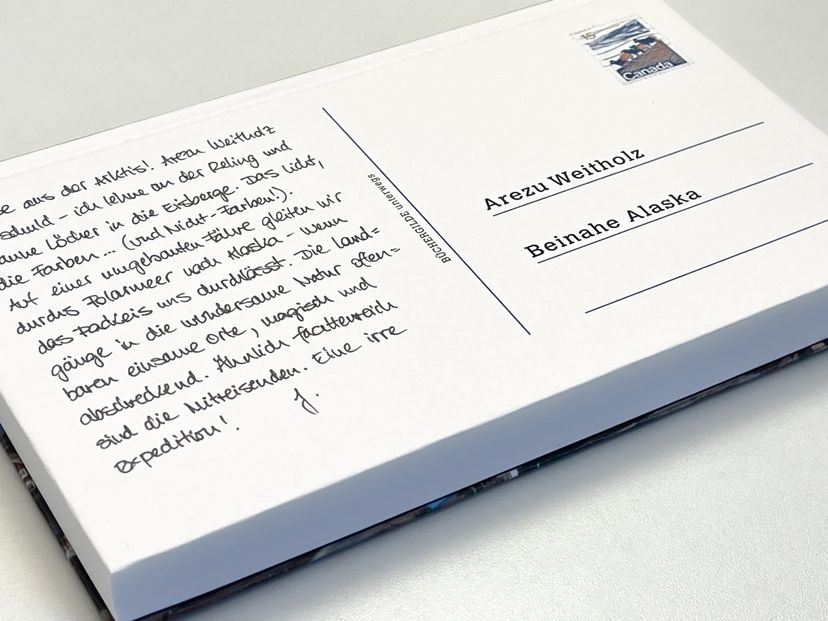 se aus der Arktis! Arezu Weitholz
schuld – ich lehne an der Reling und
anne Löcher in die Eisberge. Das Licht,
die Farben ... (und Nicht-Farben!).
Auf einer umgebauten Fähre gleiten wir
durchs Polarmeer nach Alaska – wenn
das Packeis uns durchlässt. Die Land=
gänge in die wundersame Natur offen=
baren einsame Orte, magisch und
abschreckend. Ähnlich facettenreich
sind die Mitreisenden. Eine irre
Expedition! J.
BÜCHERGILDE unterwegs
15
Canada
Arezu Weitholz
Beinahe Alaska